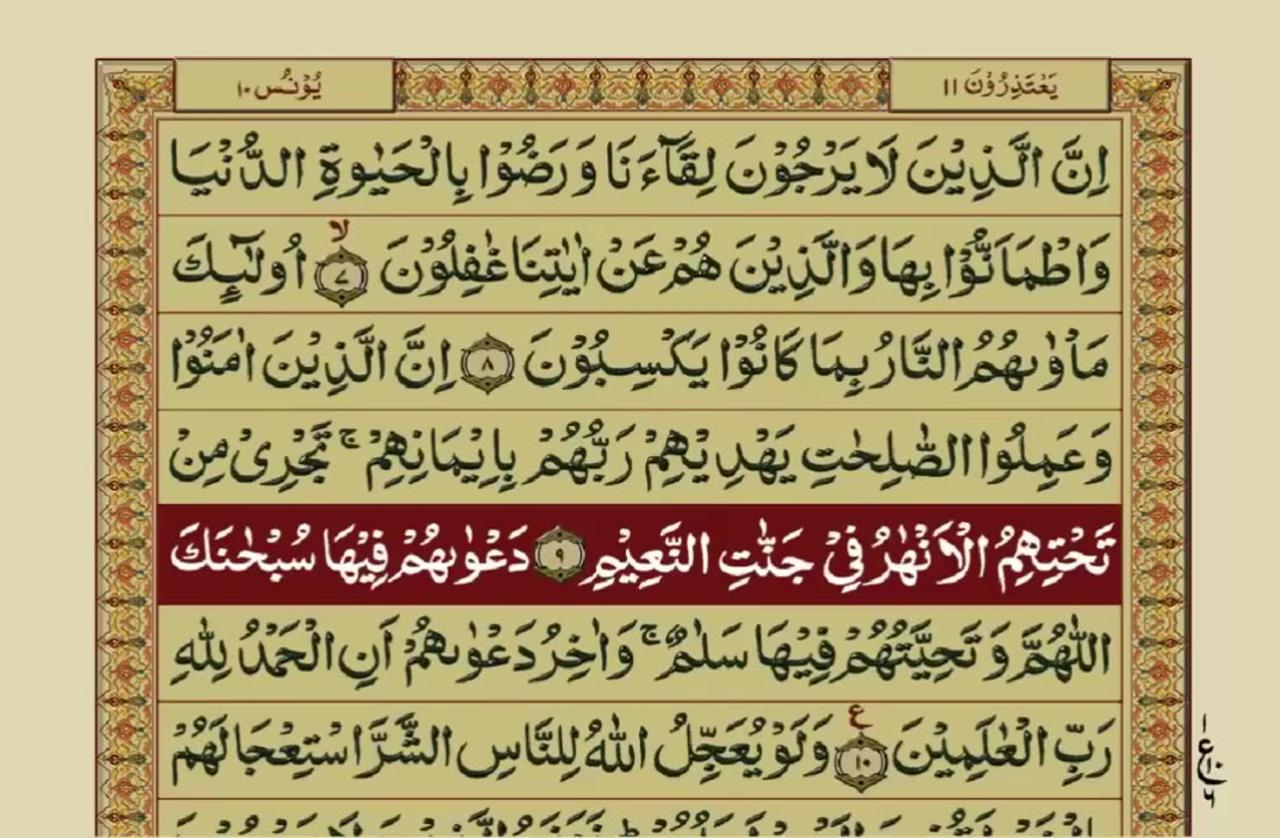 یَعْتَذِرُوْنَ ١١
یُوْنُس ١٠
اِنَّ الَّذِیْنَ لَا یَرْجُوْنَ لِقَآءَنَا وَ رَضُوْا بِالْحَیٰوةِ الدُّنْیَا
وَ اطْمَاَنُّوْا بِهَا وَ الَّذِیْنَ هُمْ عَنْ اٰیٰتِنَا غٰفِلُوْنَ ۙ ﴿٧﴾ اُولٰٓىِٕكَ
مَاْوٰىهُمُ النَّارُ بِمَا كَانُوْا یَكْسِبُوْنَ ﴿٨﴾ اِنَّ الَّذِیْنَ اٰمَنُوْا
وَ عَمِلُوا الصّٰلِحٰتِ یَهْدِیْهِمْ رَبُّهُمْ بِاِیْمَانِهِمْ ۚ تَجْرِیْ مِنْ
تَحْتِهِمُ الْاَنْهٰرُ فِیْ جَنّٰتِ النَّعِیْمِ ﴿٩﴾ دَعْوٰىهُمْ فِیْهَا سُبْحٰنَكَ
اللّٰهُمَّ وَ تَحِیَّتُهُمْ فِیْهَا سَلٰمٌ ۚ وَ اٰخِرُ دَعْوٰىهُمْ اَنِ الْحَمْدُ لِلّٰهِ
رَبِّ الْعٰلَمِیْنَ ﴿١٠﴾ ع وَ لَوْ یُعَجِّلُ اللّٰهُ لِلنَّاسِ الشَّرَّ اسْتِعْجَالَهُمْ
١
ع ١٠
٦